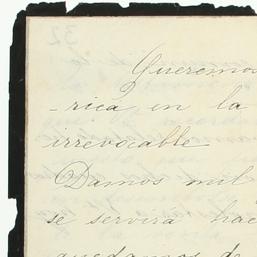 Queremos
-rica en la
irrevocable
Damos mil
se servirá hac
quedamos de